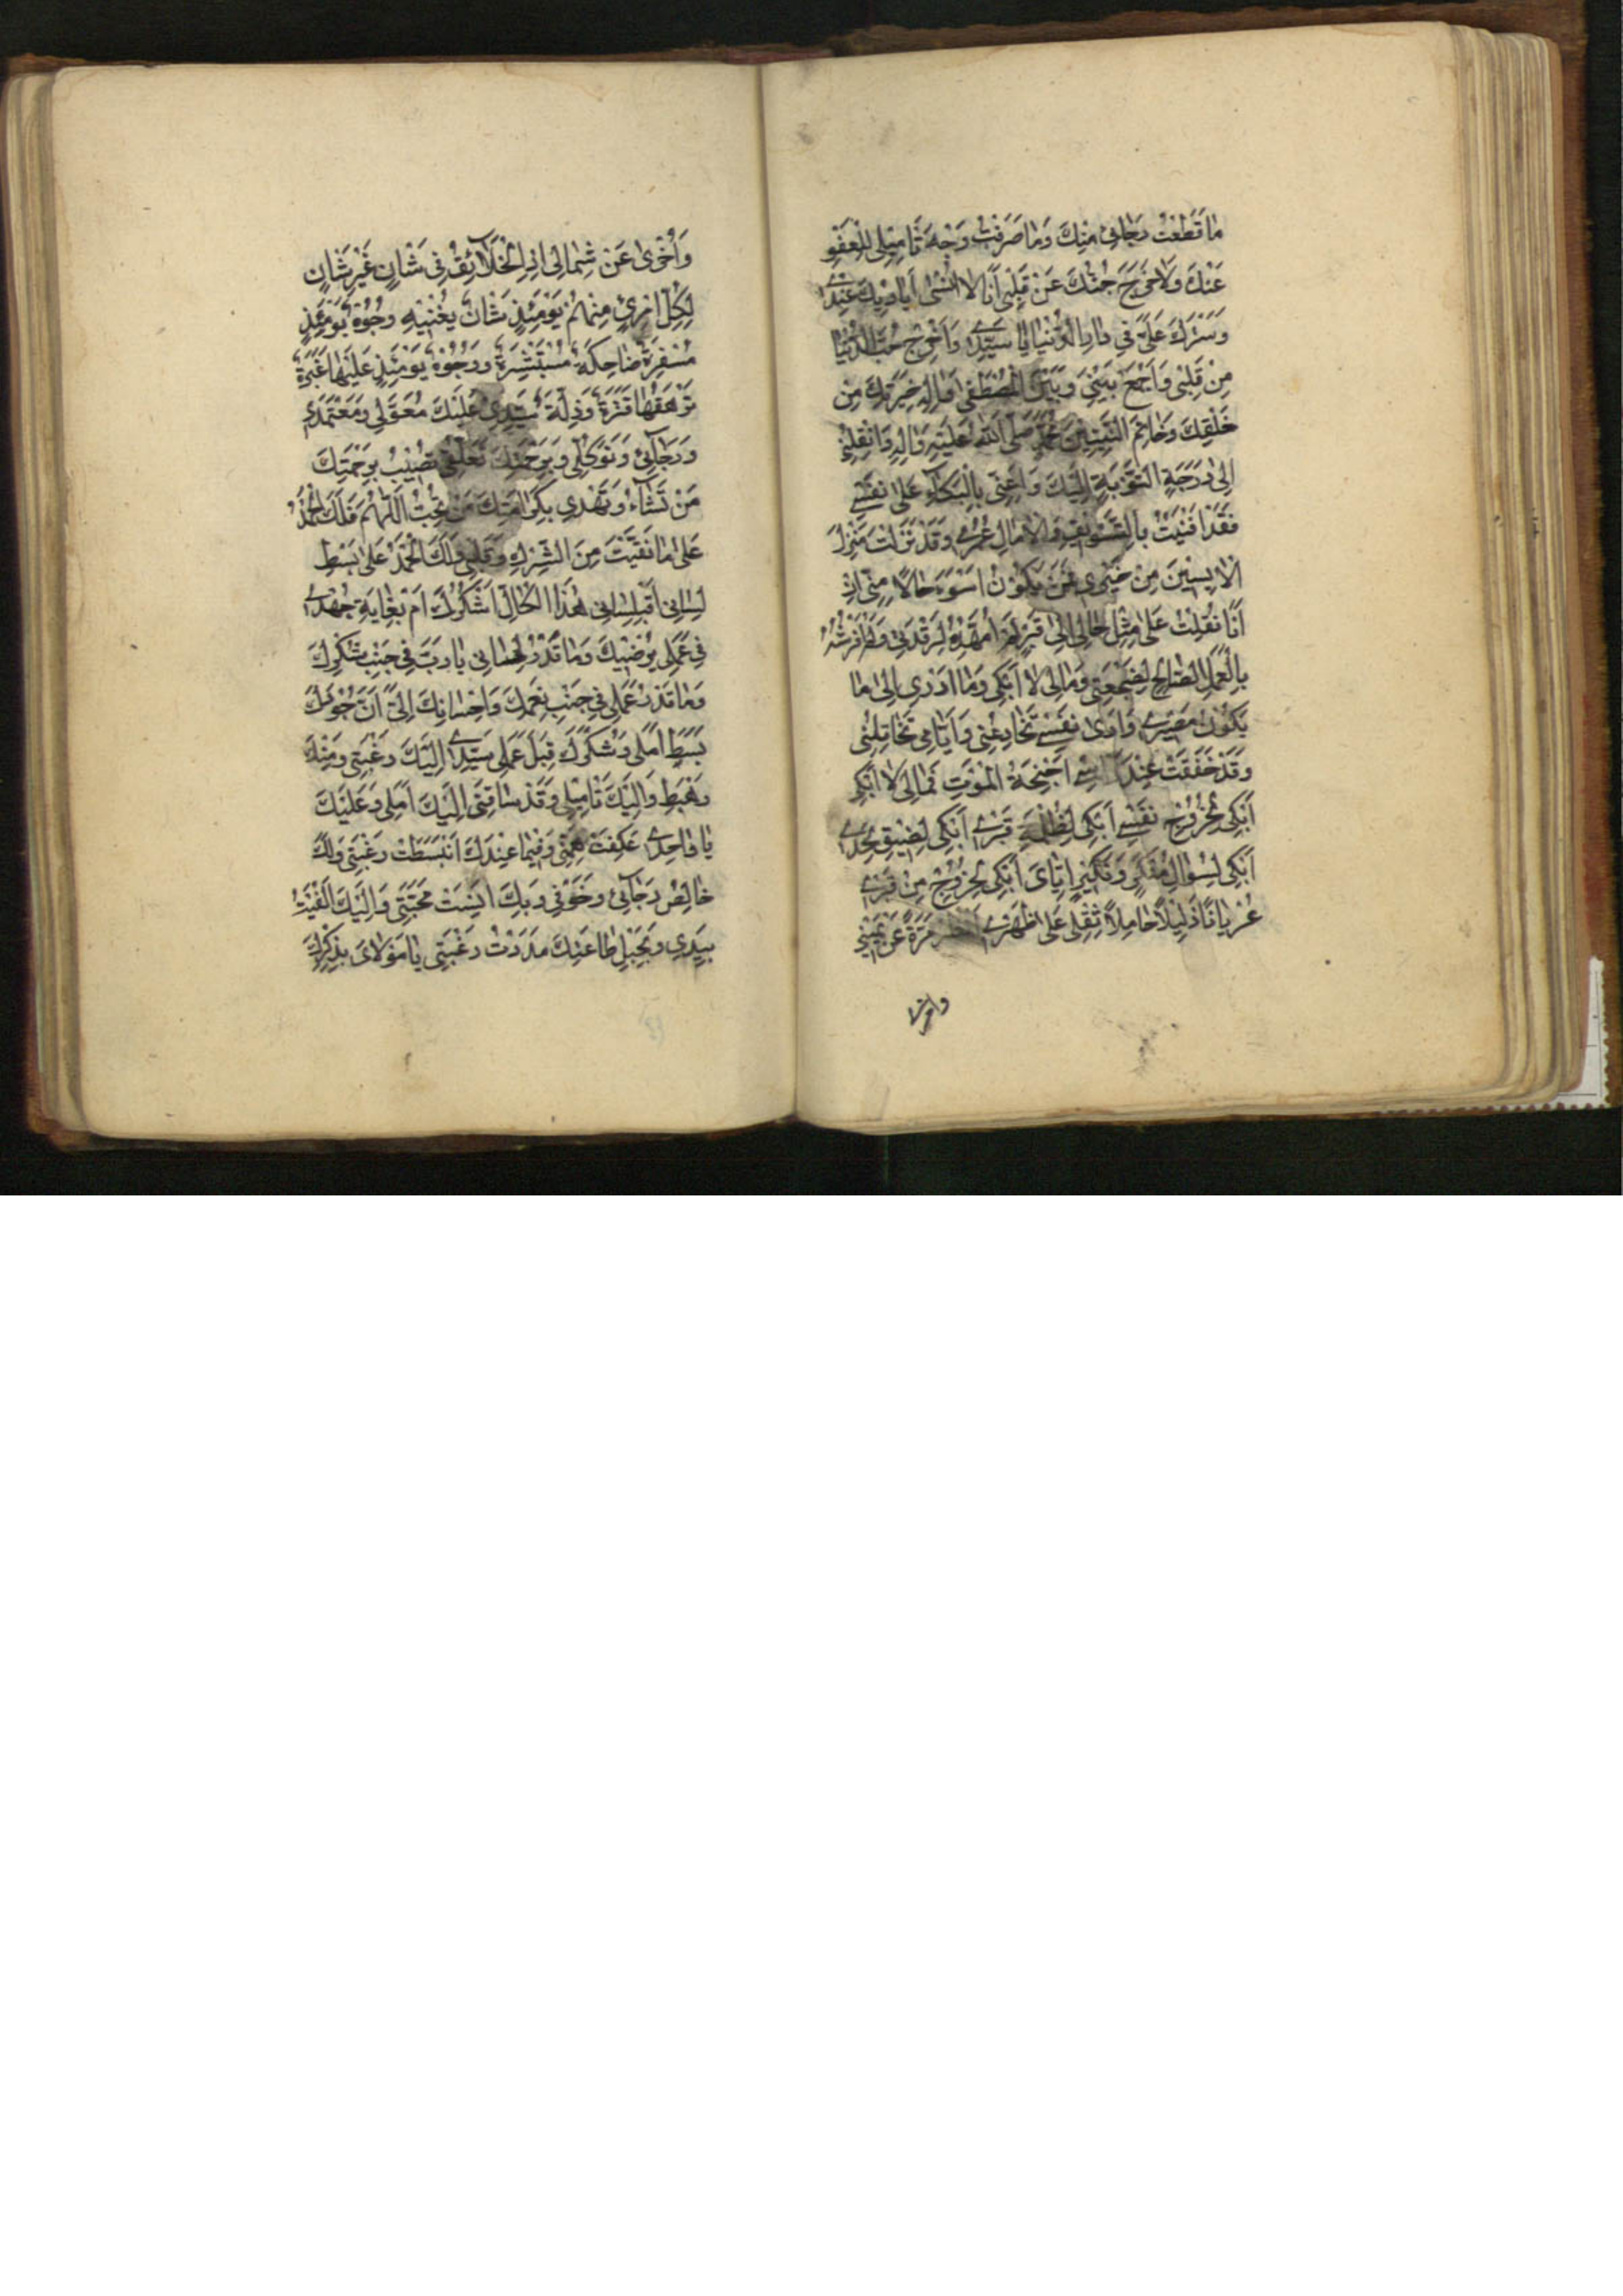 مَا قَطَعْتُ رَجَائِي مِنْكَ وَمَا صَرَفْتُ وَجْهَ تَأْمِيلِي لِلْعَفْوِ
عَنْكَ وَلَا خَرَجَ حُبُّكَ عَنْ قَلْبِي أَنَا لَا أَنْسَى أَيَادِيَكَ عِنْدِي
وَسَتْرَكَ عَلَيَّ فِي دَارِ الدُّنْيَا يَا سَيِّدِي وَأَخْرِجْ حُبَّ الدُّنْيَا
مِنْ قَلْبِي وَاجْمَعْ بَيْنِي وَبَيْنَ الْمُصْطَفَى وَآلِهِ خِيَرَتِكَ مِنْ
خَلْقِكَ وَخَاتِمِ النَّبِيِّينَ مُحَمَّدٍ صَلَّى اللَّهُ عَلَيْهِ وَآلِهِ وَانْقُلْنِي
إِلَى دَرَجَةِ التَّوْبَةِ إِلَيْكَ وَأَعِنِّي بِالْبُكَاءِ عَلَى نَفْسِي
فَقَدْ أَفْنَيْتُ بِالتَّسْوِيفِ وَالْآمَالِ عُمْرِي وَقَدْ نَزَلْتُ مَنْزِلَ
الْآيِسِينَ مِنْ خَيْرِي فَمَنْ يَكُونُ أَسْوَءَ حَالًا مِنِّي إِنْ
أَنَا نُقِلْتُ عَلَى مِثْلِ حَالِي إِلَى قَبْرٍ لَمْ أُمَهِّدْهُ لِرَقْدَتِي وَلَمْ أَفْرُشْهُ
بِالْعَمَلِ الصَّالِحِ لِضَجْعَتِي وَمَا لِي لَا أَبْكِي وَمَا أَدْرِي إِلَى مَا
يَكُونُ مَصِيرِي وَأَرَى نَفْسِي تُخَادِعُنِي وَأَيَّامِي تُخَاتِلُنِي
وَقَدْ خَفَقَتْ عِنْدَ رَأْسِي أَجْنِحَةُ الْمَوْتِ فَمَا لِي لَا أَبْكِي
أَبْكِي لِخُرُوجِ نَفْسِي أَبْكِي لِظُلْمَةِ قَبْرِي أَبْكِي لِضِيقِ لَحْدِي
أَبْكِي لِسُؤَالِ مُنْكَرٍ وَنَكِيرٍ إِيَّايَ أَبْكِي لِخُرُوجِي مِنْ قَبْرِي
عُرْيَانًا ذَلِيلًا حَامِلًا ثِقْلِي عَلَى ظَهْرِي أَنْظُرُ مَرَّةً عَنْ يَمِينِي
وأخرى
وَأُخْرَى عَنْ شِمَالِي إِذِ الْخَلَائِقُ فِي شَأْنٍ غَيْرِ شَأْنِي
لِكُلِّ امْرِئٍ مِنْهُمْ يَوْمَئِذٍ شَأْنٌ يُغْنِيهِ وُجُوهٌ يَوْمَئِذٍ
مُسْفِرَةٌ ضَاحِكَةٌ مُسْتَبْشِرَةٌ وَوُجُوهٌ يَوْمَئِذٍ عَلَيْهَا غَبَرَةٌ
تَرْهَقُهَا قَتَرَةٌ وَذِلَّةٌ سَيِّدِي عَلَيْكَ مُعَوَّلِي وَمُعْتَمَدِي
وَرَجَائِي وَتَوَكُّلِي وَبِرَحْمَتِكَ تَعَلُّقِي تُصِيبُ بِرَحْمَتِكَ
مَنْ تَشَاءُ وَتَهْدِي بِكَرَامَتِكَ مَنْ تُحِبُّ اللَّهُمَّ فَلَكَ الْحَمْدُ
عَلَى مَا نَقَّيْتَ مِنَ الشِّرْكِ قَلْبِي وَلَكَ الْحَمْدُ عَلَى بَسْطِ
لِسَانِي أَفَبِلِسَانِي هَذَا الْكَالِّ أَشْكُرُكَ أَمْ بِغَايَةِ جُهْدِي
فِي عَمَلِي يُرْضِيكَ وَمَا قَدْرُ لِسَانِي يَا رَبِّ فِي جَنْبِ شُكْرِكَ
وَمَا قَدْرُ عَمَلِي فِي جَنْبِ نِعَمِكَ وَإِحْسَانِكَ إِلَيَّ أَنَّ جُودَكَ
بَسَطَ أَمَلِي وَشُكْرَكَ قَبِلَ عَمَلِي سَيِّدِي إِلَيْكَ رَغْبَتِي وَمِنْكَ
رَهْبَتِي وَإِلَيْكَ تَأْمِيلِي وَقَدْ سَاقَنِي إِلَيْكَ أَمَلِي وَعَلَيْكَ
يَا وَاحِدِي عَكَفَتْ هِمَّتِي وَفِيمَا عِنْدَكَ انْبَسَطَتْ رَغْبَتِي وَلَكَ
خَالِصُ رَجَائِي وَخَوْفِي وَبِكَ أَنِسَتْ مَحَبَّتِي وَإِلَيْكَ أَلْقَيْتُ
بِيَدِي وَبِحَبْلِ طَاعَتِكَ مَدَدْتُ رَغْبَتِي يَا مَوْلَايَ بِذِكْرِكَ